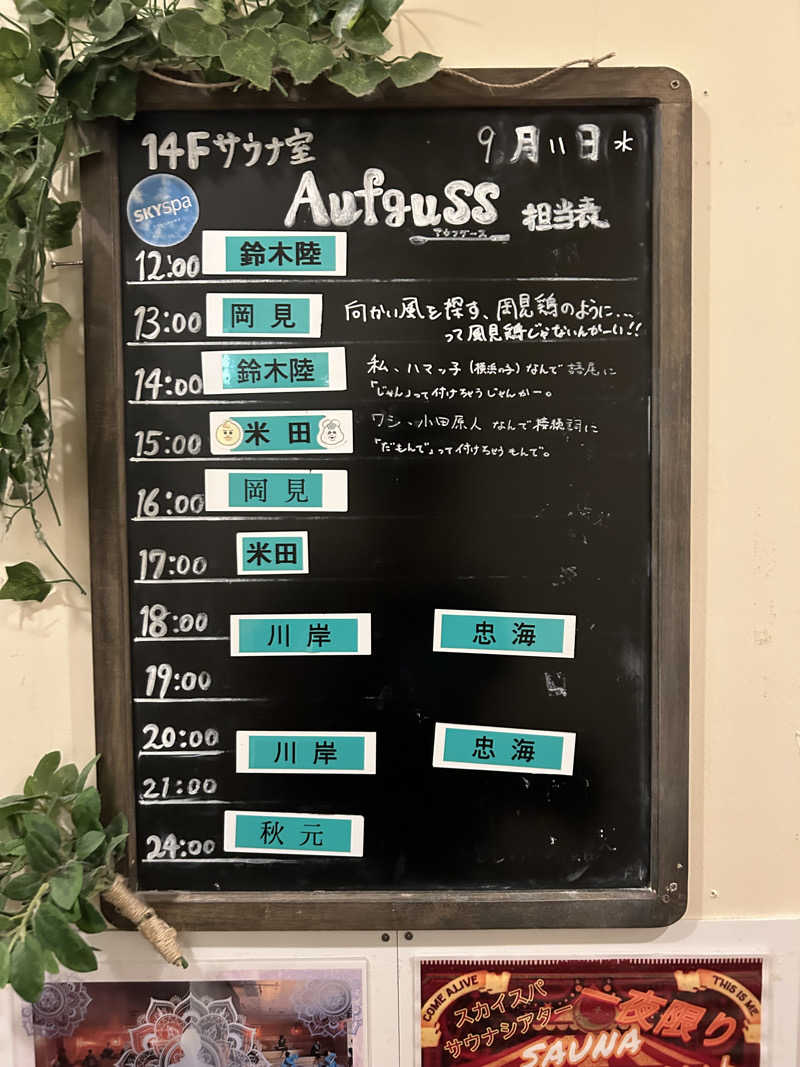 14Fサウナ室
9月11日水
SKYspa
Aufguss 担当表
アウフグース
12:00 鈴木陸
13:00 岡見 向かい風を探す、岡見鶏のように...
って風見鶏じゃないんかーい!!
14:00 鈴木陸 私、ハマッ子(横浜の子)なんで語尾に
「じゃん」って付けちゃうじゃんかー。
15:00 米田 ワシ、小田原人なんで接続詞に
「だもんで」って付けちゃうもんで。
16:00 岡見
17:00 米田
18:00 川岸 忠海
19:00
20:00 川岸 忠海
21:00
24:00 秋元
COME ALIVE
THIS IS ME
スカイスパ
サウナシアター
一夜限り
SAUNA